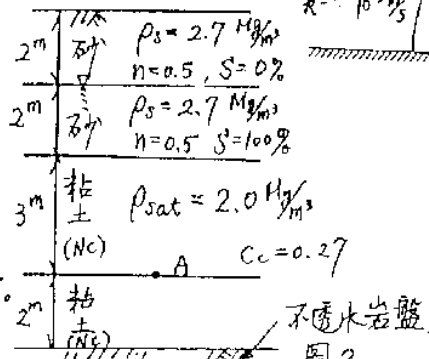 2m 砂 ρs = 2.7 Mg/m³
n=0.5 , S=0%
2m 砂 ρs = 2.7 Mg/m³
n=0.5 S=100%
3m 粘土 (NC) ρsat = 2.0 Mg/m³
Cc = 0.27
A
2m 粘土 (NC)
不透水岩盤
図2